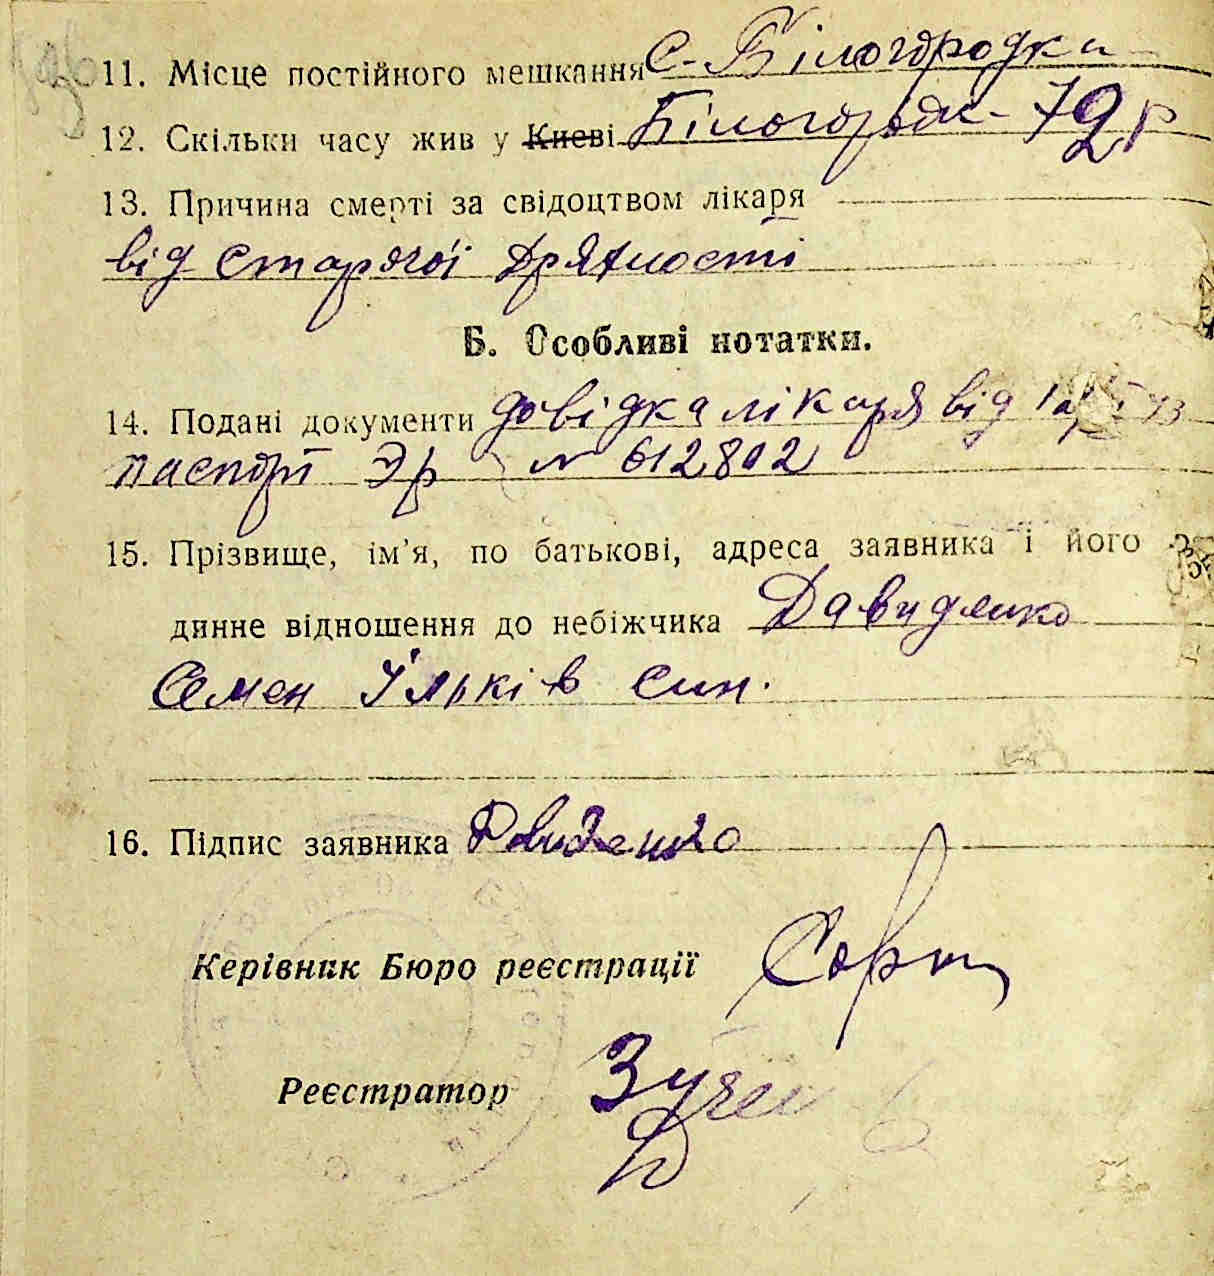 11. Місце постійного мешкання с. Білогородка
12. Скільки часу жив у Києві Білогородк- 72 р
13. Причина смерті за свідоцтвом лікаря
від старечої дряхлости
Б. Особливі нотатки.
14. Подані документи довідка лікаря від
паспорт Эр № 612802
15. Прізвище, ім'я, по батькові, адреса заявника і його
динне відношення до небіжчика Давиденко
Семен Ільків син.
16. Підпис заявника Давиденко
Керівник Бюро реєстрації
Реєстратор